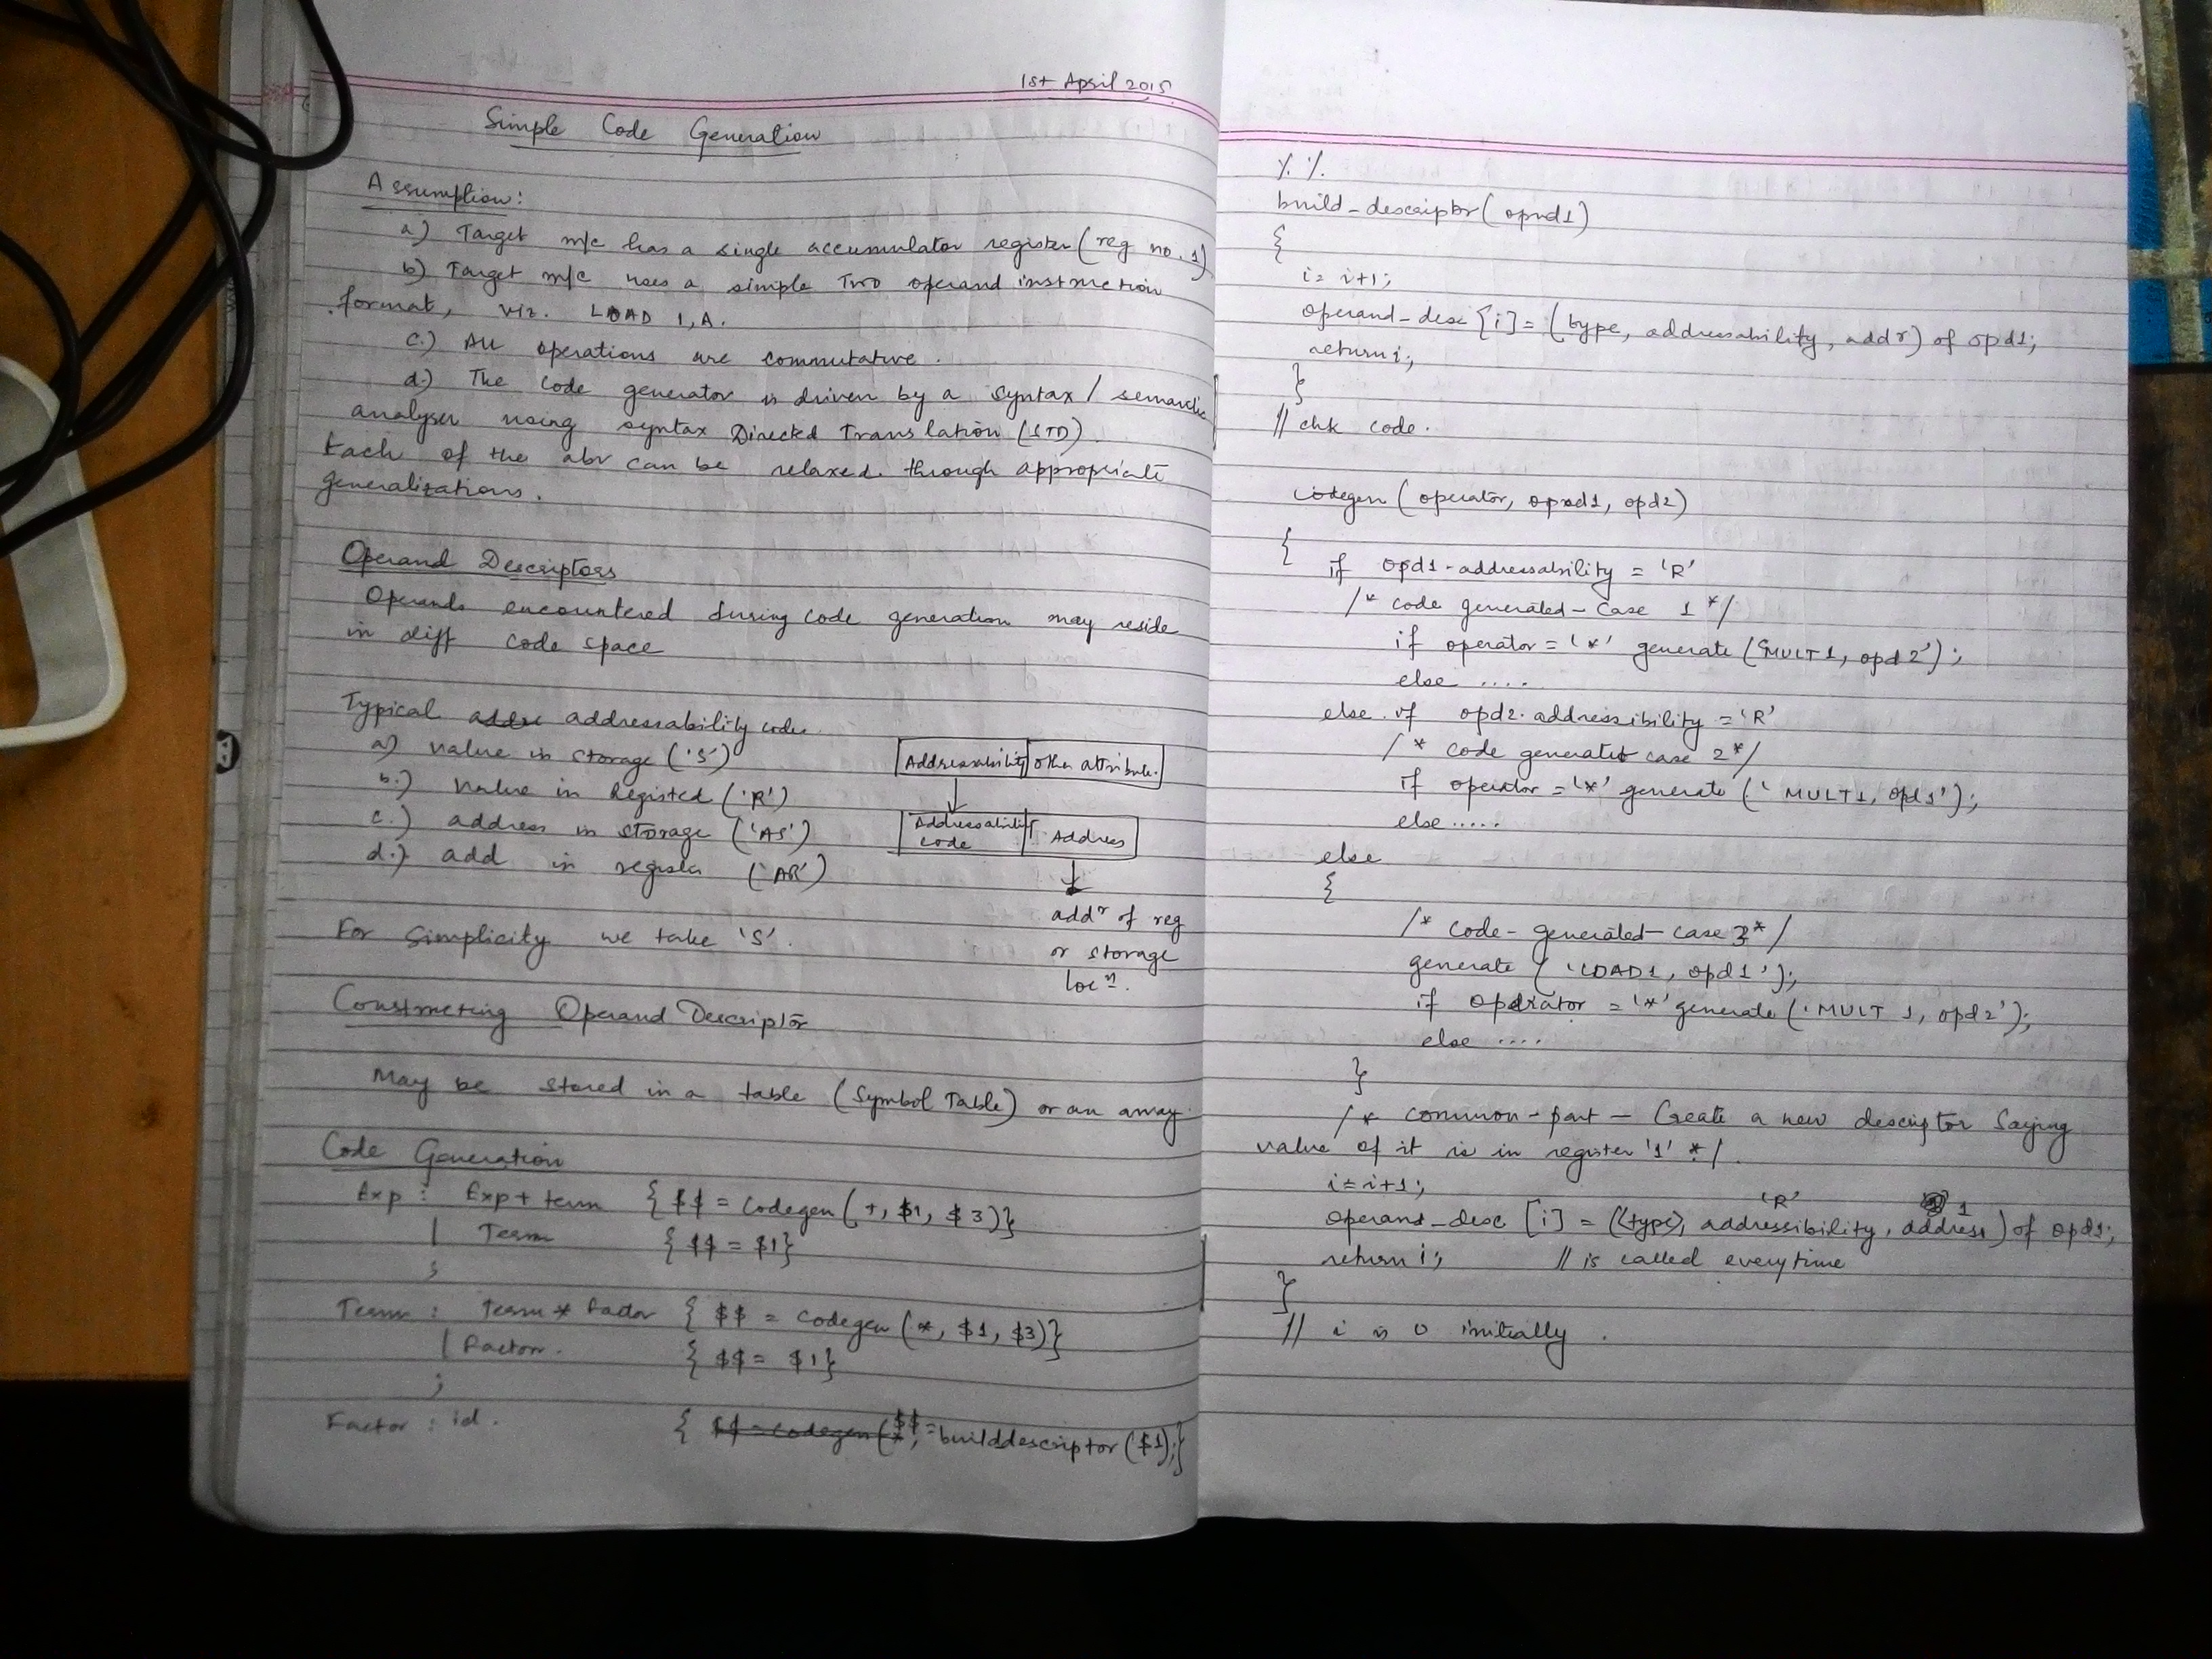 1st April 2015
Simple Code Generation
Assumption:
a) Target m/c has a single accumulator register (reg no. 1)
b) Target m/c uses a simple Two operand instruction
format, viz. LOAD 1, A.
c.) All operations are commutative.
d.) The code generator is driven by a syntax / semantic
analyser using syntax Directed Translation (STD).
Each of the abv can be relaxed through appropriate
generalizations.
Operand Descriptors
Operands encountered during code generation may reside
in diff code space
Typical addressability code
a) value in storage ('S')
b.) value in Registed ('R')
c.) address in storage ('AS')
d.) add in register ('AR')
Addressability other attribute.
Addressability code Address
addr of reg
or storage
locn.
For simplicity we take 'S'.
Constructing Operand Descriptor
May be stored in a table (Symbol Table) or an array.
Code Generation
Exp : Exp + term { $$ = Codegen (+, $1, $3)}
| Term { $$ = $1}
;
Term : Term * Factor { $$ = Codegen (*, $1, $3)}
| Factor. { $$ = $1}
;
Factor : id. { $$ = builddescriptor ($1);}
%%
build_descriptor (opnd1)
{
i = i+1;
operand_desc [i] = (type, addressability, addr) of opd1;
return i;
}
// chk code.
Codegen (operator, opnd1, opd2)
{
if opd1.addressability = 'R'
/* code generated - Case 1 */
if operator = '*' generate ('MULT1, opd2');
else ....
else if opd2.addressibility = 'R'
/* code generated case 2 */
if operator = '*' generate (' MULT1, opd1');
else .....
else
{
/* code-generated-case 3 */
generate ( 'LOAD1, opd1');
if operator = '*' generate ('MULT 1, opd2');
else ....
}
/* common-part - Create a new descriptor Saying
value of it is in register '1' */
i = i+1;
'R' 1
operand_desc [i] = (<type>, addressibility, address) of opd1;
return i; // is called everytime
}
// i is 0 initially.